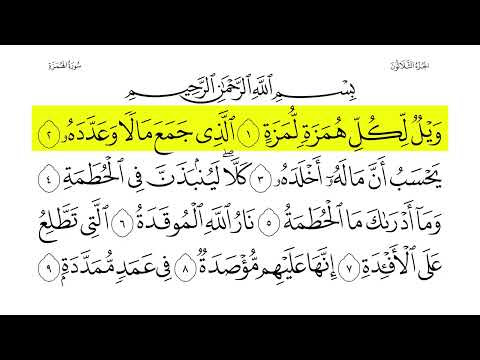 الجزء الثلاثون
سورة الهمزة
بِسْمِ ٱللَّهِ ٱلرَّحْمَٰنِ ٱلرَّحِيمِ
وَيْلٌ لِّكُلِّ هُمَزَةٍ لُّمَزَةٍ ١ ٱلَّذِى جَمَعَ مَالًا وَعَدَّدَهُۥ ٢
يَحْسَبُ أَنَّ مَالَهُۥٓ أَخْلَدَهُۥ ٣ كَلَّا ۖ لَيُنۢبَذَنَّ فِى ٱلْحُطَمَةِ ٤
وَمَآ أَدْرَىٰكَ مَا ٱلْحُطَمَةُ ٥ نَارُ ٱللَّهِ ٱلْمُوقَدَةُ ٦ ٱلَّتِى تَطَّلِعُ
عَلَى ٱلْأَفْـِٔدَةِ ٧ إِنَّهَا عَلَيْهِم مُّؤْصَدَةٌ ٨ فِى عَمَدٍ مُّمَدَّدَةٍۭ ٩